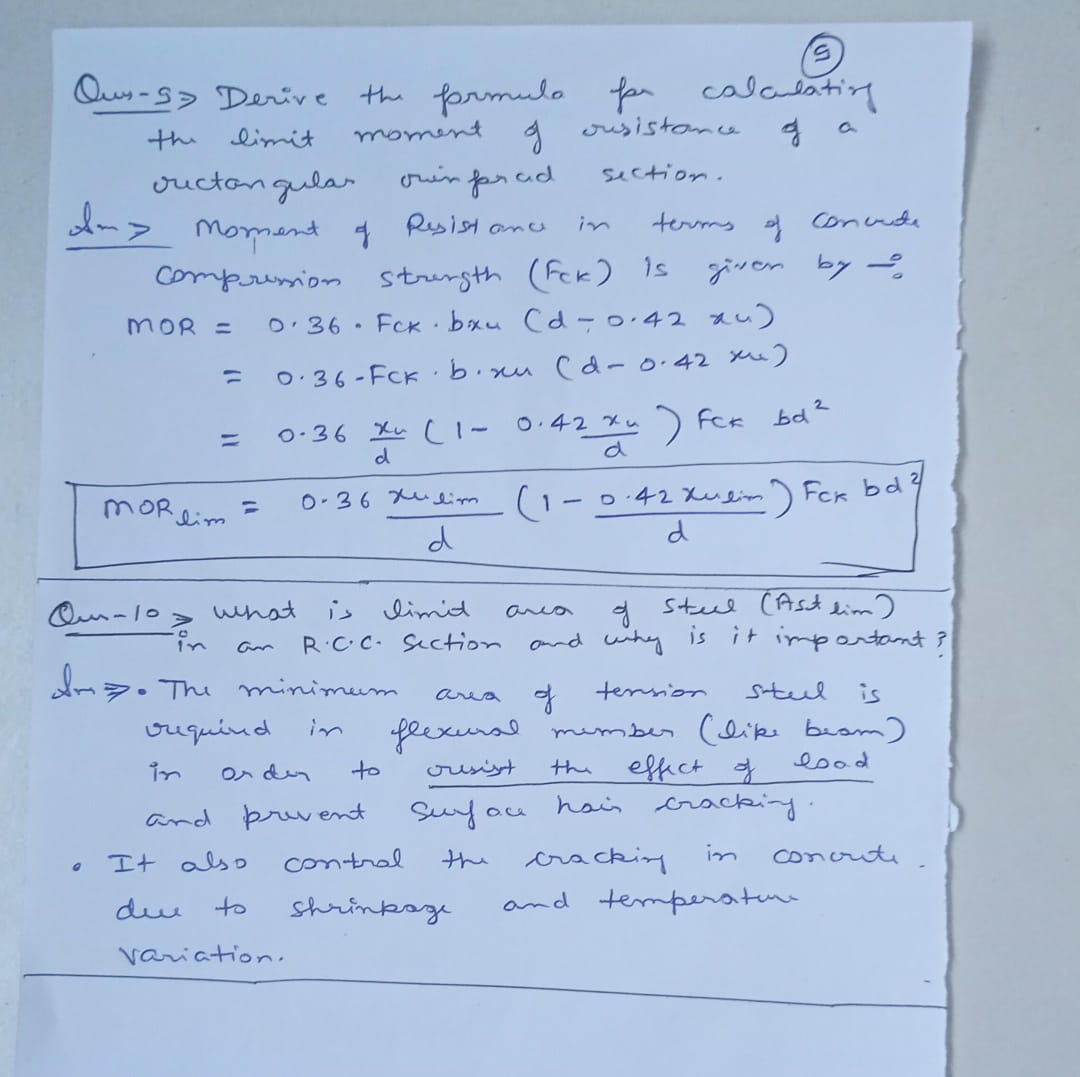 5
Ques-9> Derive the formula for calculating
the limit moment of resistance of a
rectangular reinforced section.
Ans> Moment of Resistance in terms of concrete
compression strength (Fck) is given by ÷
MOR = 0.36 . Fck . bxu (d - 0.42 xu)
= 0.36 - Fck . b . xu (d - 0.42 xu)
= 0.36 xu/d (1 - 0.42 xu/d) Fck bd²
MORlim = 0.36 xulim/d (1 - 0.42 xulim/d) Fck bd²
Ques-10> What is limit area of steel (Ast lim)
in an R.C.C. Section and why is it important?
Ans>• The minimum area of tension steel is
required in flexural member (like beam)
in order to resist the effect of load
and prevent surface hair cracking.
• It also control the cracking in concrete.
due to shrinkage and temperature
variation.